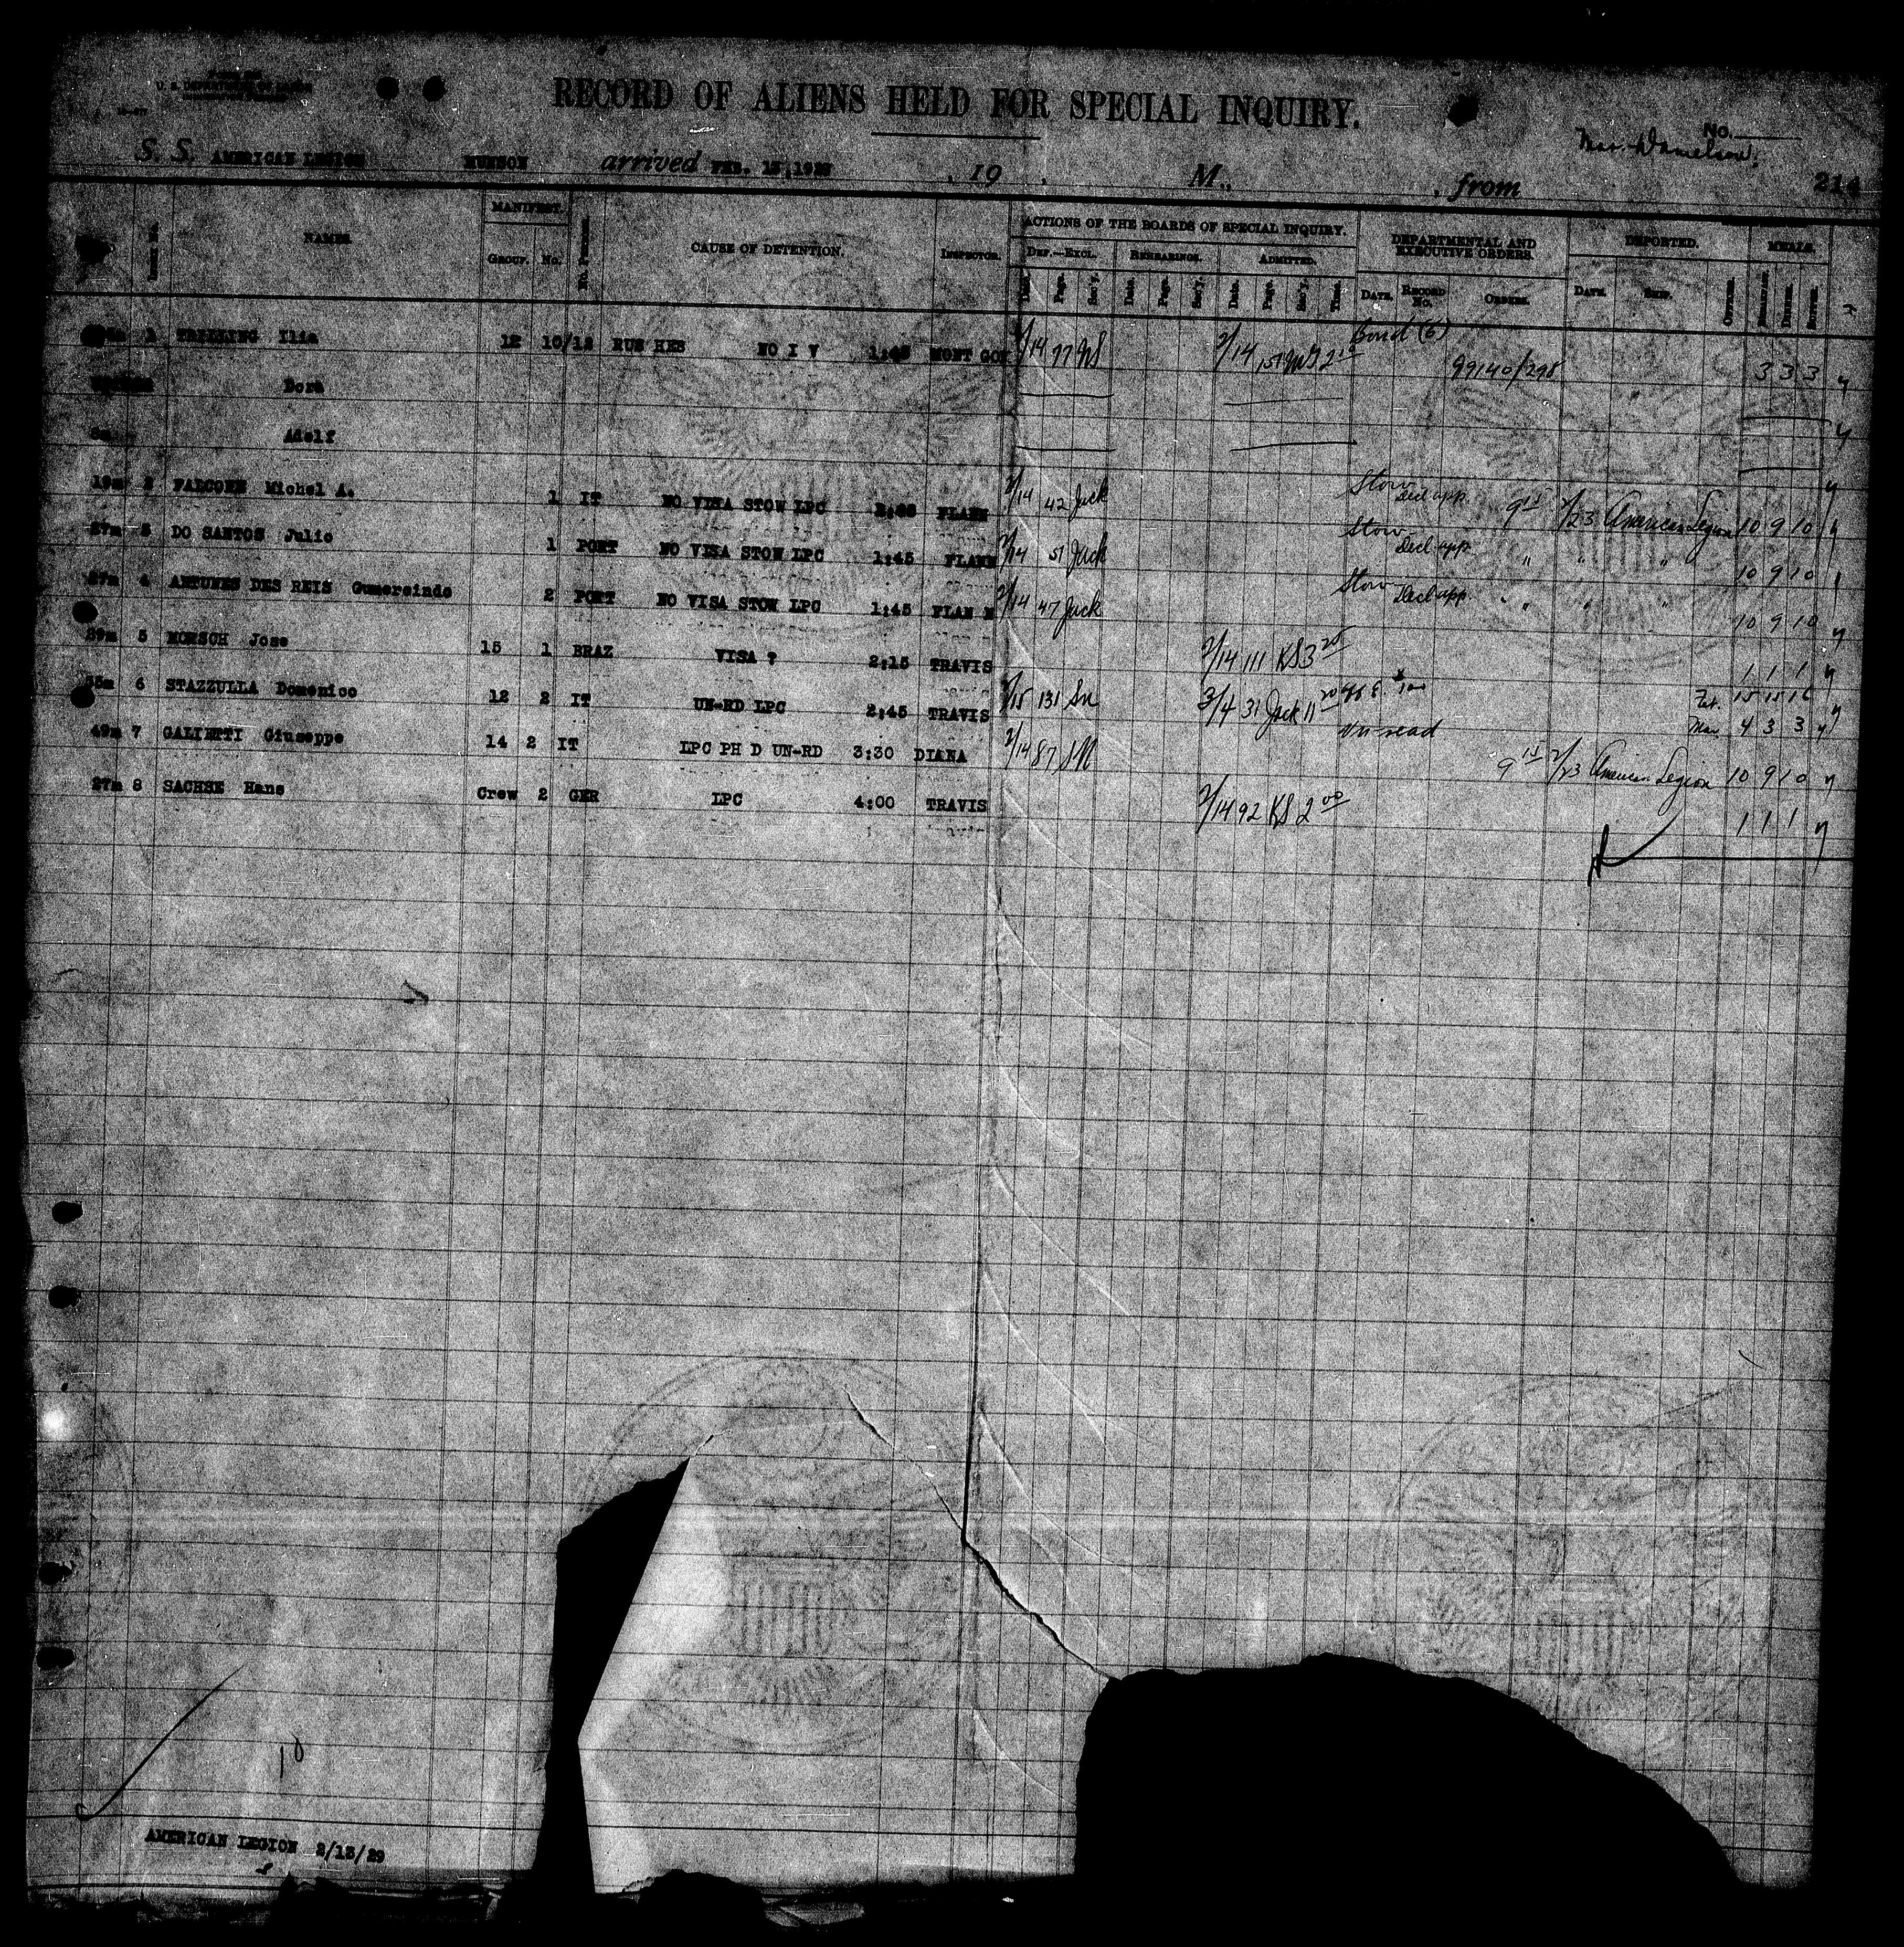 U. S. DEPARTMENT OF LABOR
RECORD OF ALIENS HELD FOR SPECIAL INQUIRY.
No.
S. S. AMERICAN LEGION MUNSON arrived FEB. 13, 1929 , 19 . M., , from 214
MANIFEST. ACTIONS OF THE BOARDS OF SPECIAL INQUIRY. DEPARTMENTAL AND EXECUTIVE ORDERS. DEPORTED. MEALS.
NAMES. GROUP. No. CAUSE OF DETENTION. INSPECTOR. DEF.—EXCL. REHEARINGS. ADMITTED.
Date. Page. Sec'y. Date. Page. Sec'y. Date. Page. Sec'y. Time. DATE. RECORD No. ORDERS. DATE. SHIP. Breakfasts. Dinners. Suppers.
1 Ilia 12 10/12 RUS HEB NO I V 1:45 MONT GOM 2/14 77 2/14 151 Bond (6) 99140/298 3 3 3
Dora
Adolf
19m 2 FALCONE Michel A. 1 IT NO VISA STOW LPC FLANN 2/14 42 Jack Stow Decl app. 9 15 2/23 American Legion 10 9 10
27m 3 DO SANTOS Julio 1 PORT NO VISA STOW LPC 1:45 FLANN 2/14 51 Jack Stow Decl app. " " " 10 9 10
27m 4 ANTUNES DES REIS Gumersindo 2 PORT NO VISA STOW LPC 1:45 FLAN N 2/14 47 Jack Stow Decl app. " " " 10 9 10
29m 5 MORSCH Jose 15 1 BRAZ VISA ? 2:15 TRAVIS 2/14 111 KS 3 25 1 1 1
35m 6 STAZZULLA Domenico 12 2 IT UN-RD LPC 2:45 TRAVIS 2/15 131 Sn 3/4 31 Jack 11 Feb. 15 15 16
Un-read Mar. 4 3 3
49m 7 GALIETTI Giuseppe 14 2 IT LPC PH D UN-RD 3:30 DIANA 2/14 87 SN 9 15 2/23 American Legion 10 9 10
27m 8 SACHSE Hans Crew 2 GER LPC 4:00 TRAVIS 2/14 92 KS 2 00 1 1 1
10
AMERICAN LEGION 2/13/29